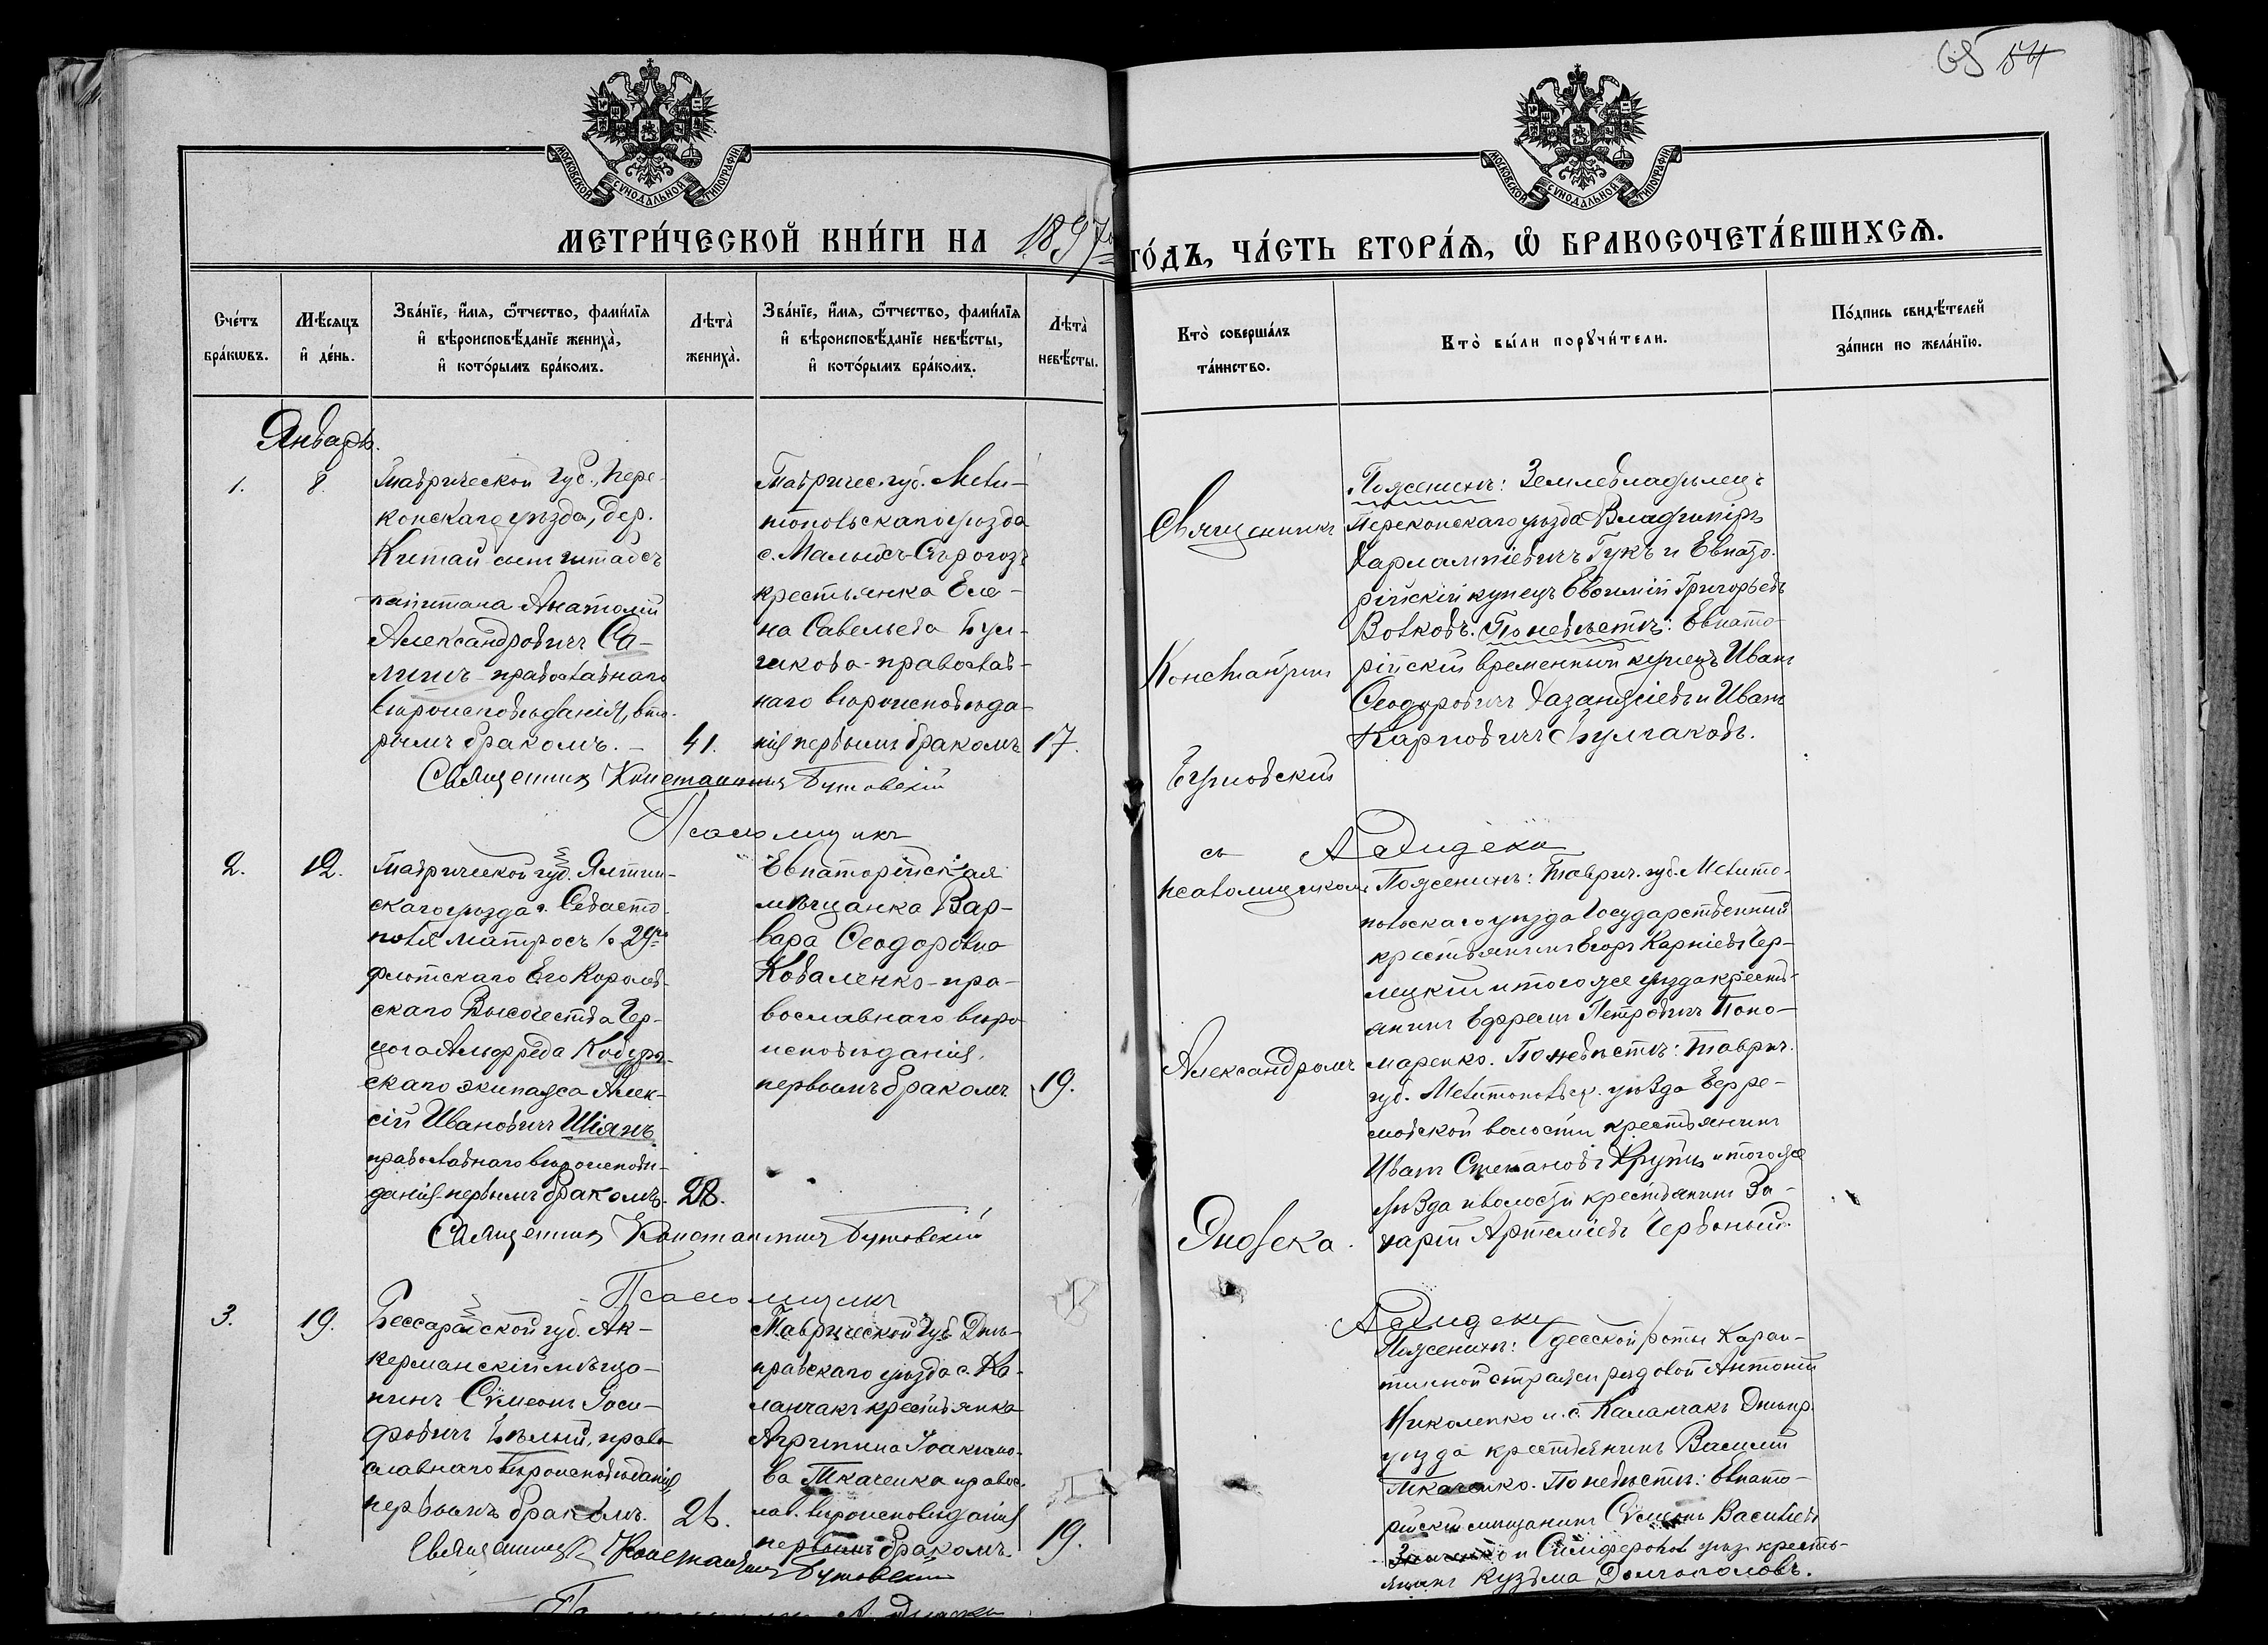 65 54
МОСКОВСКОЙ СѴНОДАЛЬНОЙ ТИПОГРАФІИ
МОСКОВСКОЙ СѴНОДАЛЬНОЙ ТИПОГРАФІИ
МЕТРИ́ЧЕСКОЙ КНИ́ГИ НА 1897
ГО́ДЪ, ЧА́СТЬ ВТОРА́Ѧ, Ѡ҆ БРАКОСОЧЕТА́ВШИХСѦ.
Сче́тъ
бра́кѡвъ.
Мѣ́сѧцъ
и҆ де́нь.
Зва́нїе, и҆́мѧ, ѻ҆́тчество, фами́лїѧ
и҆ вѣроисповѣ́данїе жениха̀,
и҆ кото́рымъ бра́комъ.
Лѣта̀
жениха̀.
Зва́нїе, и҆́мѧ, ѻ҆́тчество, фами́лїѧ
и҆ вѣроисповѣ́данїе невѣ́сты,
и҆ кото́рымъ бра́комъ.
Лѣта̀
невѣ́сты.
Кто̀ соверша́лъ
та́инство.
Кто̀ бы́ли порꙋчи́тели.
По́дпись свидѣ́телей
за́писи по жела́нїю.
Январь.
1.
8.
Таврической губ., Пере-
копскаго уѣзда, дер.
Китай сынъ штабсъ
капитана Анатолій
Александровичъ Са-
личъ православнаго
вѣроисповѣданія, вто-
рымъ бракомъ. –
41.
Таврическ. губ. Мели-
топольскаго уѣзда
с. Малыхъ-Сѣрогозъ
крестьянка Еле-
на Савельева Бул-
гакова - православ-
наго вѣроисповѣда-
нія первымъ бракомъ
17.
Священникъ Константинъ Бутовскій
Псаломщикъ
Священникъ
Константинъ
Бутовскій
съ
псаломщикомъ
Александромъ
Поженихѣ: Землевладѣлецъ
Перекопскаго уѣзда Владиміръ
Харлампіевичъ Гукъ и Евпато-
рійскій купецъ Евѳимій Григорьевъ
Волковъ. По невѣстѣ: Евпато-
рійскій временный купецъ Иванъ
Ѳеодоровичъ Хазанджіевъ и Иванъ
Карповичъ Булгаковъ.
2.
12.
Таврической губ. Ялтин-
скаго уѣзда г. Севасто-
поля матросъ 29го
флотскаго Его Королев-
скаго Высочества Гер-
цога Альфреда Кобург-
скаго экипажа Алек-
сій Ивановичъ Шіянъ
православнаго вѣроисповѣ-
данія первымъ бракомъ.
28.
Евпаторійская
мѣщанка Вар-
вара Ѳеодоровна
Коваленко - пра-
вославнаго вѣро-
исповѣданія,
первымъ бракомъ
19.
Священникъ Константинъ Бутовскій
Псаломщикъ
Поженихѣ: Таврич. губ. Мелито-
польскаго уѣзда Государственный
крестьянинъ Егоръ Карпіевъ
и того же уѣзда кресть-
янинъ Ефремъ Петровичъ Поно-
маренко. По невѣстѣ: Таврич.
губ. Мелитопольск. уѣзда
волости крестьянинъ
Иванъ Степановъ и того же
уѣзда и волости крестьянинъ За-
харій Артеміевъ Червоный.
3.
19.
Бессарабской губ. Ак-
керманскій мѣща-
нинъ Сѵмеонъ
Бѣлый, право-
славнаго вѣроисповѣданія
первымъ бракомъ.
26.
Таврической губ. Днѣ-
провскаго уѣзда с. Ка-
ланчакъ крестьянка
Агрипина Іоакимо-
ва Ткаченко правос-
лав. вѣроисповѣданія
первымъ бракомъ.
19.
Священникъ Константинъ Бутовскій
Поженихѣ: Одесской роты Каран-
тинной стражи рядовой Антоній
Николенко и с. Каланчакъ Днѣпр.
уѣзда крестьянинъ Василій
Ткаченко. По невѣстѣ: Евпато-
рійскій мѣщанинъ Сѵмеонъ Васильевъ
и Симферопол. уѣз. кресть-
янинъ Кузьма Долгополовъ.